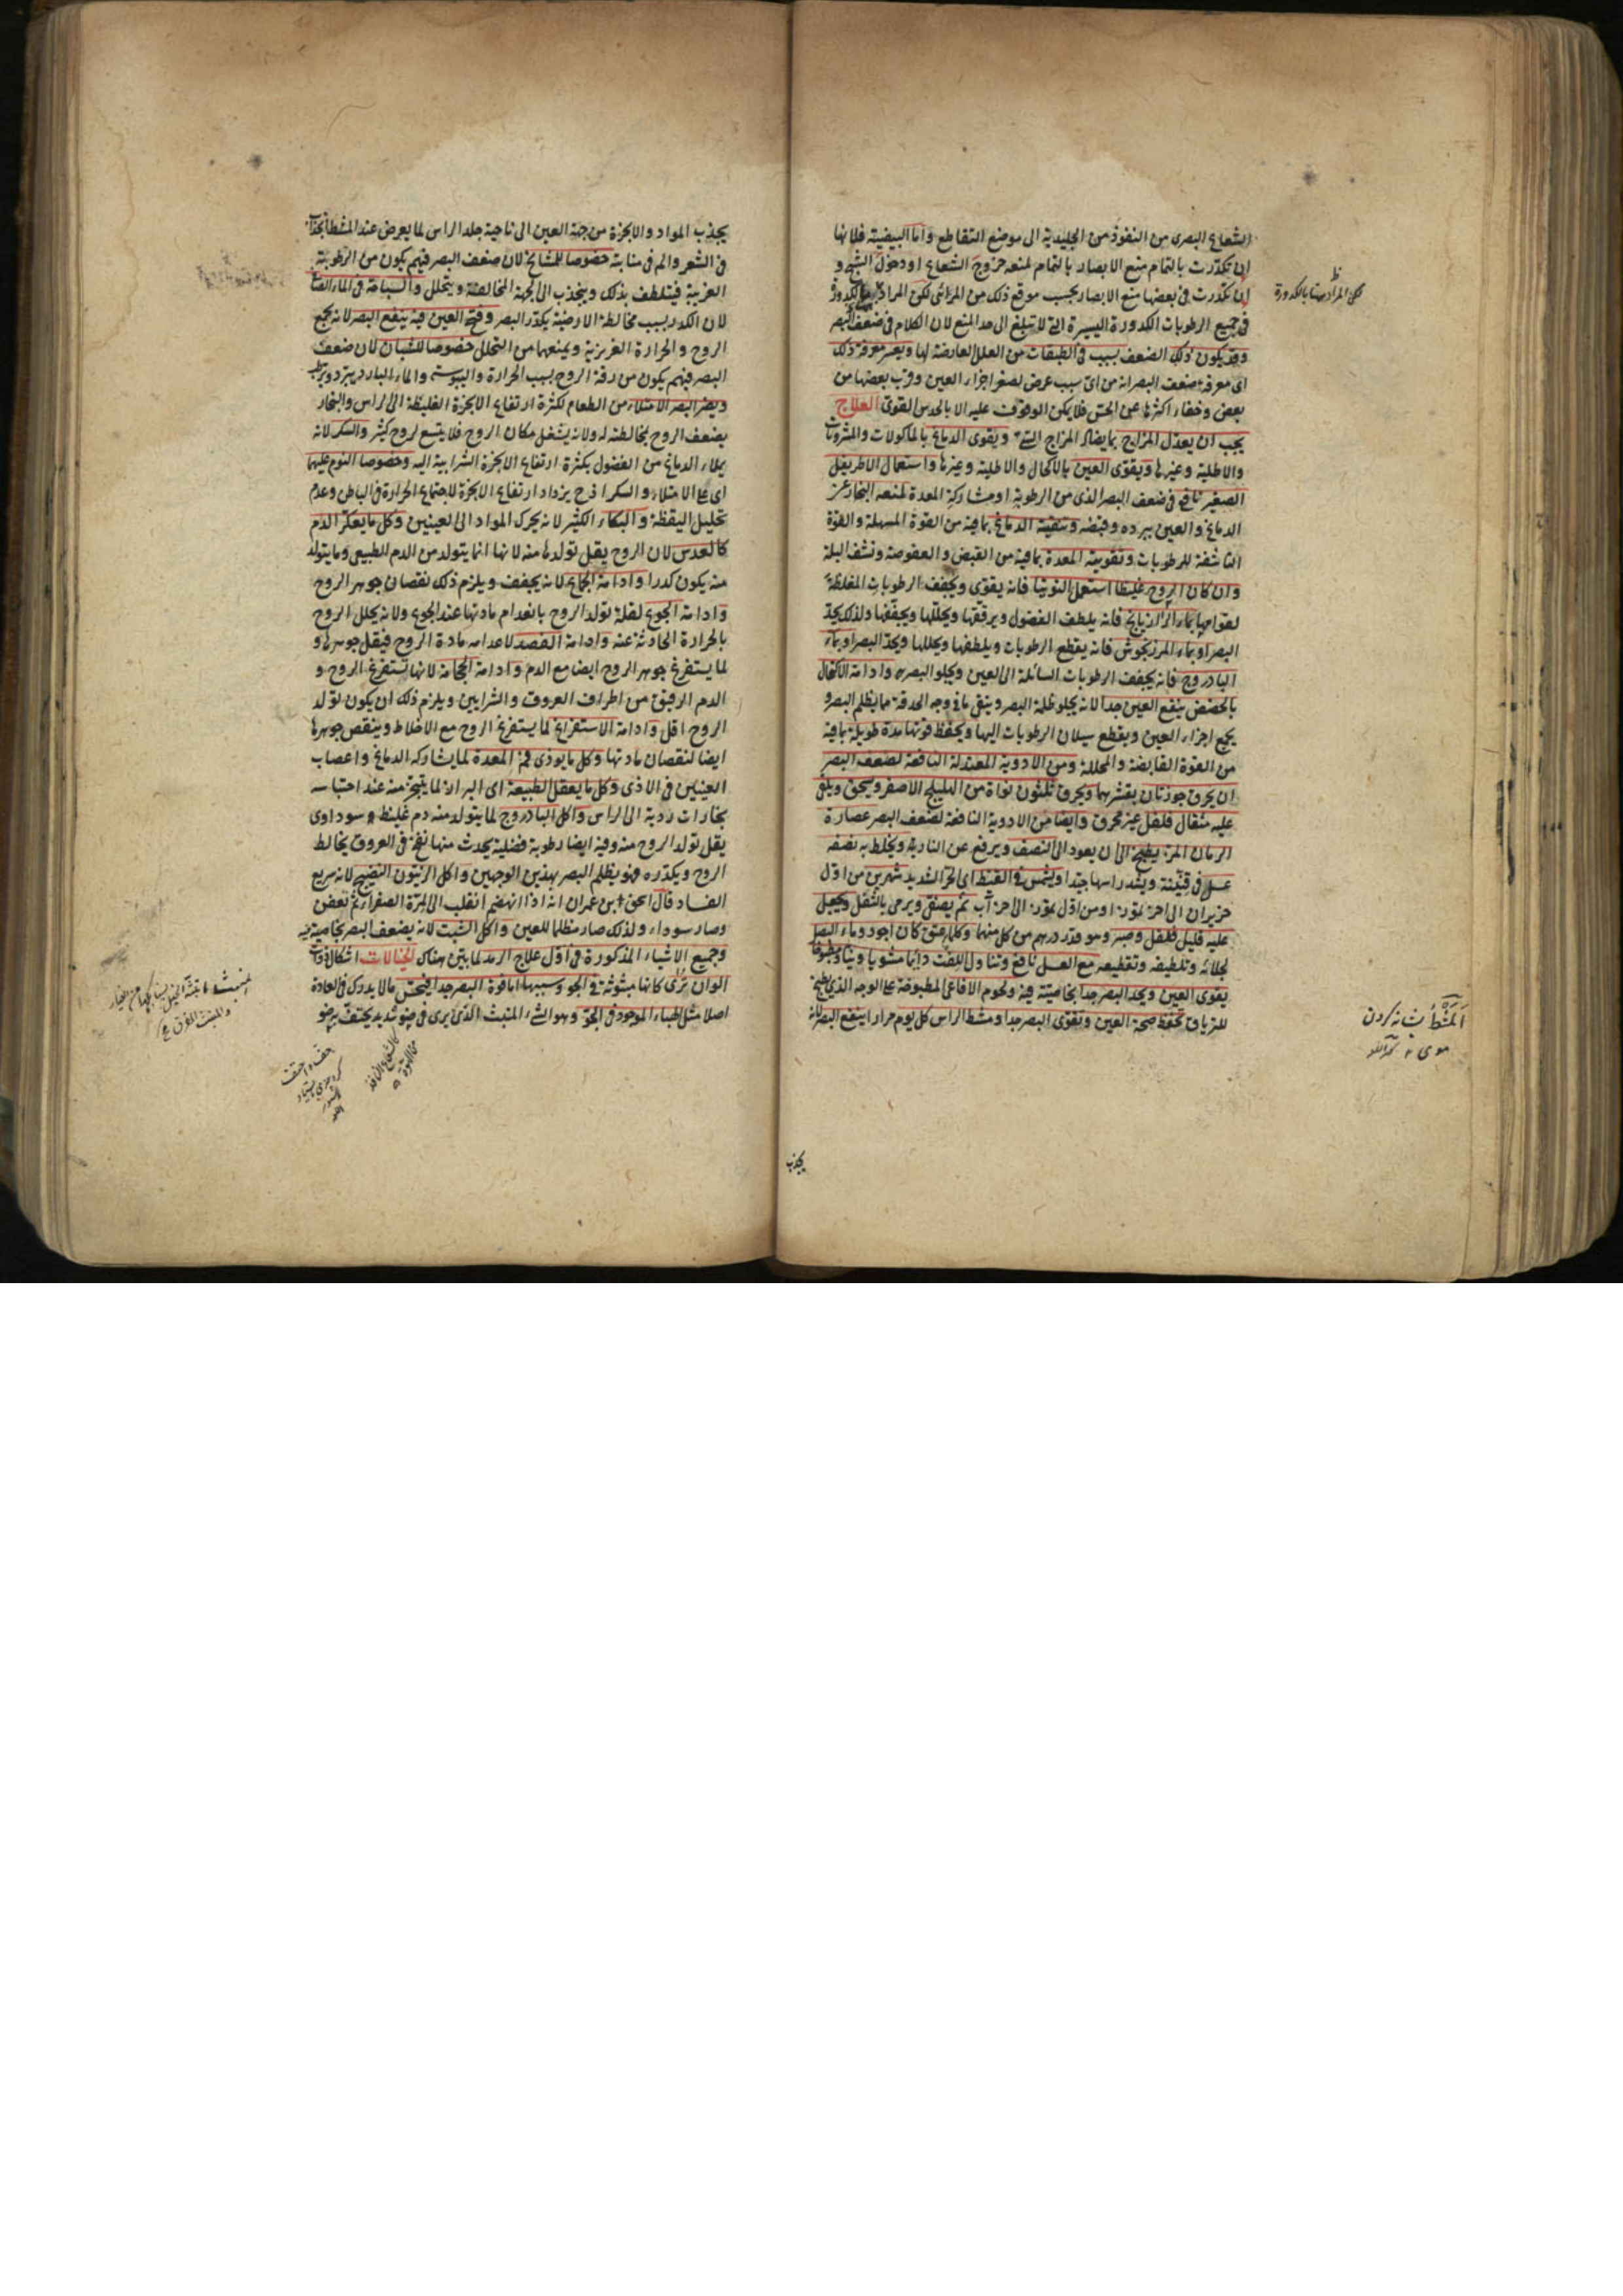 الشعاع البصرى من النفوذ من الجليدية الى موضع التقاطع واما البيضية فلانها
ان تكدرت بالتمام منع الابصار بالتمام لمنعه خروج الشعاع او دخول الشبح و
ان تكدرت فى بعضها منع الابصار بحسب موقع ذلك من المرائى لكن المراد بالكدورة
فى جميع الرطوبات الكدورة اليسيرة التى لا تبلغ الى حد المنع لان الكلام فى ضعف البصر
وقد يكون ذلك الضعف بسبب فى الطبقات من العلل العارضة لها ويعسر معرفة ذلك
اى معرفة ضعف البصر انه من اى سبب عرض لصغر اجزاء العين وقرب بعضها من
بعض وخفاء اكثرها عن الحس فلا يمكن الوقوف عليه الا بالحدس القوى العلاج
يجب ان يعدل المزاج بما يضاد المزاج ويقوى الدماغ بالماكولات والمشروبات
والاطلية وغيرها ويقوى العين بالاكحال والاطلية وغيرها واستعمال الاطريفل
الصغير نافع فى ضعف البصر الذى من الرطوبة او مشاركة المعدة لمنعه البخار عن
الدماغ والعين ببرده وقبضه وتنقية الدماغ بما فيه من القوة المسهلة والقوة
الناشفة للرطوبات وتقوية المعدة بما فيه من القبض والعفوصة ونشف البلة
وان كان الروح غليظا استعمل التوتيا فانه يقوى ويجفف الرطوبات المغلظة
لقوامها بماء الرازيانج فانه يلطف الفضول ويرققها ويحللها ويجففها ولذلك يحد
البصر او بماء المرزنجوش فانه يقطع الرطوبات ويلطفها ويحللها ويحد البصر او بماء
البادروج فانه يجفف الرطوبات السائلة الى العين ويجلو البصر وادامة الاكتحال
بالحضض ينفع العين جدا لانه يجلو ظلمة البصر وينقى ما فى وجه الحدقة مما يظلم البصر و
يجمع اجزاء العين ويقطع سيلان الرطوبات اليها ويحفظ قوتها مدة طويلة بما فيه
من القوة القابضة والمحللة ومن الادوية المعتدلة النافعة لضعف البصر
ان يحرق جوزتان بقشرهما ويحرق ثلثون نواة من الهليلج الاصفر ويسحق ويلقى
عليه مثقال فلفل غير محرق وايضا من الادوية النافعة لضعف البصر عصارة
الرمان المز يطبخ الى ان يعود الى النصف ويرفع عن النار ويخلط به نصفه
عسل فى قنينة ويشد راسها جيدا ويشمس فى القيظ اى الحر الشديد شهرين من اول
حزيران الى اخر تموز او من اول تموز الى اخر آب ثم يصفى ويرمى بالثفل ويجعل
عليه قليل فلفل وصبر وهو قدر درهم من كل منهما وكلما عتق كان اجود وماء البصل
لجلائه وتلطيفه وتقطيعه مع العسل نافع وتناول اللفت دائما مشويا ونيا ومطبوخا
يقوى العين ويحد البصر جدا بخاصية فيه ولحوم الافاعى المطبوخة على الوجه الذى يطبخ
للترياق تحفظ صحة العين وتقوى البصر جدا ومشط الراس كل يوم مرارا ينفع البصر لانه
لكن المراد ههنا بالكدورة
المشط شانه كردن
موى
يجذب
يجذب المواد والابخرة من جهة العين الى ناحية جلد الراس لما يعرض عند المشط انجذاب
فى الشعر والم فى منابته خصوصا للمشايخ لان ضعف البصر فيهم يكون من الرطوبة
الغريبة فيتلطف بذلك وينجذب الى الجهة المخالفة ويتحلل والسباحة فى الماء الصافى
لان الكدر بسبب مخالطة الارضية يكدر البصر وفتح العين فيه ينفع البصر لانه يجمع
الروح والحرارة الغريزية ويمنعهما من التحلل خصوصا للشبان لان ضعف
البصر فيهم يكون من رقة الروح بسبب الحرارة واليبوسة والماء البارد يبرد ويرطب
ويضر البصر الامتلاء من الطعام لكثرة ارتفاع الابخرة الغليظة الى الراس والبخار
يضعف الروح بمخالطته له ولانه يشغل مكان الروح فلا يتسع لروح كثير والسكر لانه
يملاء الدماغ من الفضول بكثرة ارتفاع الابخرة الشرابية اليه وخصوصا النوم عليهما
اى على الامتلاء والسكر اذ ح يزداد ارتفاع الابخرة لاجتماع الحرارة فى الباطن وعدم
تحليل اليقظة والبكاء الكثير لانه يحرك المواد الى العينين وكل ما يعكر الدم
كالعدس لان الروح يقل تولدها منه لانها انما يتولد من الدم الطبيعى وما يتولد
منه يكون كدرا وادامة الجماع لانه يجفف ويلزم ذلك نقصان جوهر الروح
وادامة الجوع لقلة تولد الروح بانعدام مادتها عند الجوع ولانه يحلل الروح
بالحرارة الحادثة عنه وادامة الفصد لاعدامه مادة الروح فيقل جوهرها و
لما يستفرغ جوهر الروح ايضا مع الدم وادامة الحجامة لانها تستفرغ الروح و
الدم الرقيق من اطراف العروق والشرايين ويلزم ذلك ان يكون تولد
الروح اقل وادامة الاستفراغ لما يستفرغ الروح مع الاخلاط وينقص جوهرها
ايضا لنقصان مادتها وكل ما يوذى فم المعدة لما يشاركه الدماغ واعصاب
العينين فى الاذى وكل ما يعقل الطبيعة اى البراز لما يتبخر منه عند احتباسه
بخارات ردية الى الراس واكل البادروج لما يتولد منه دم غليظ سوداوى
يقل تولد الروح منه وفيه ايضا رطوبة فضلية يحدث منها نفخ فى العروق يخالط
الروح ويكدره فهو يظلم البصر بهذين الوجهين واكل الزيتون النضيج لانه سريع
الفساد قال اسحق بن عمران انه اذا انهضم انقلب الى المرة الصفراء ثم تعفن
وصار سوداء ولذلك صار مظلما للعين واكل الشبت لانه يضعف البصر بخاصية فيه
وجميع الاشياء المذكورة فى اول علاج الرمد لما بين هناك الخيالات اشكال ذوات
الوان ترى كانها مبثوثة فى الجو وسببها اما قوة البصر جدا فيحس ما لا يدرك فى العادة
اصلا مثل الهباء الموجود فى الجو وهو الشئ المنبث الذى يرى فى ضوء شديد يحتف به ضوء